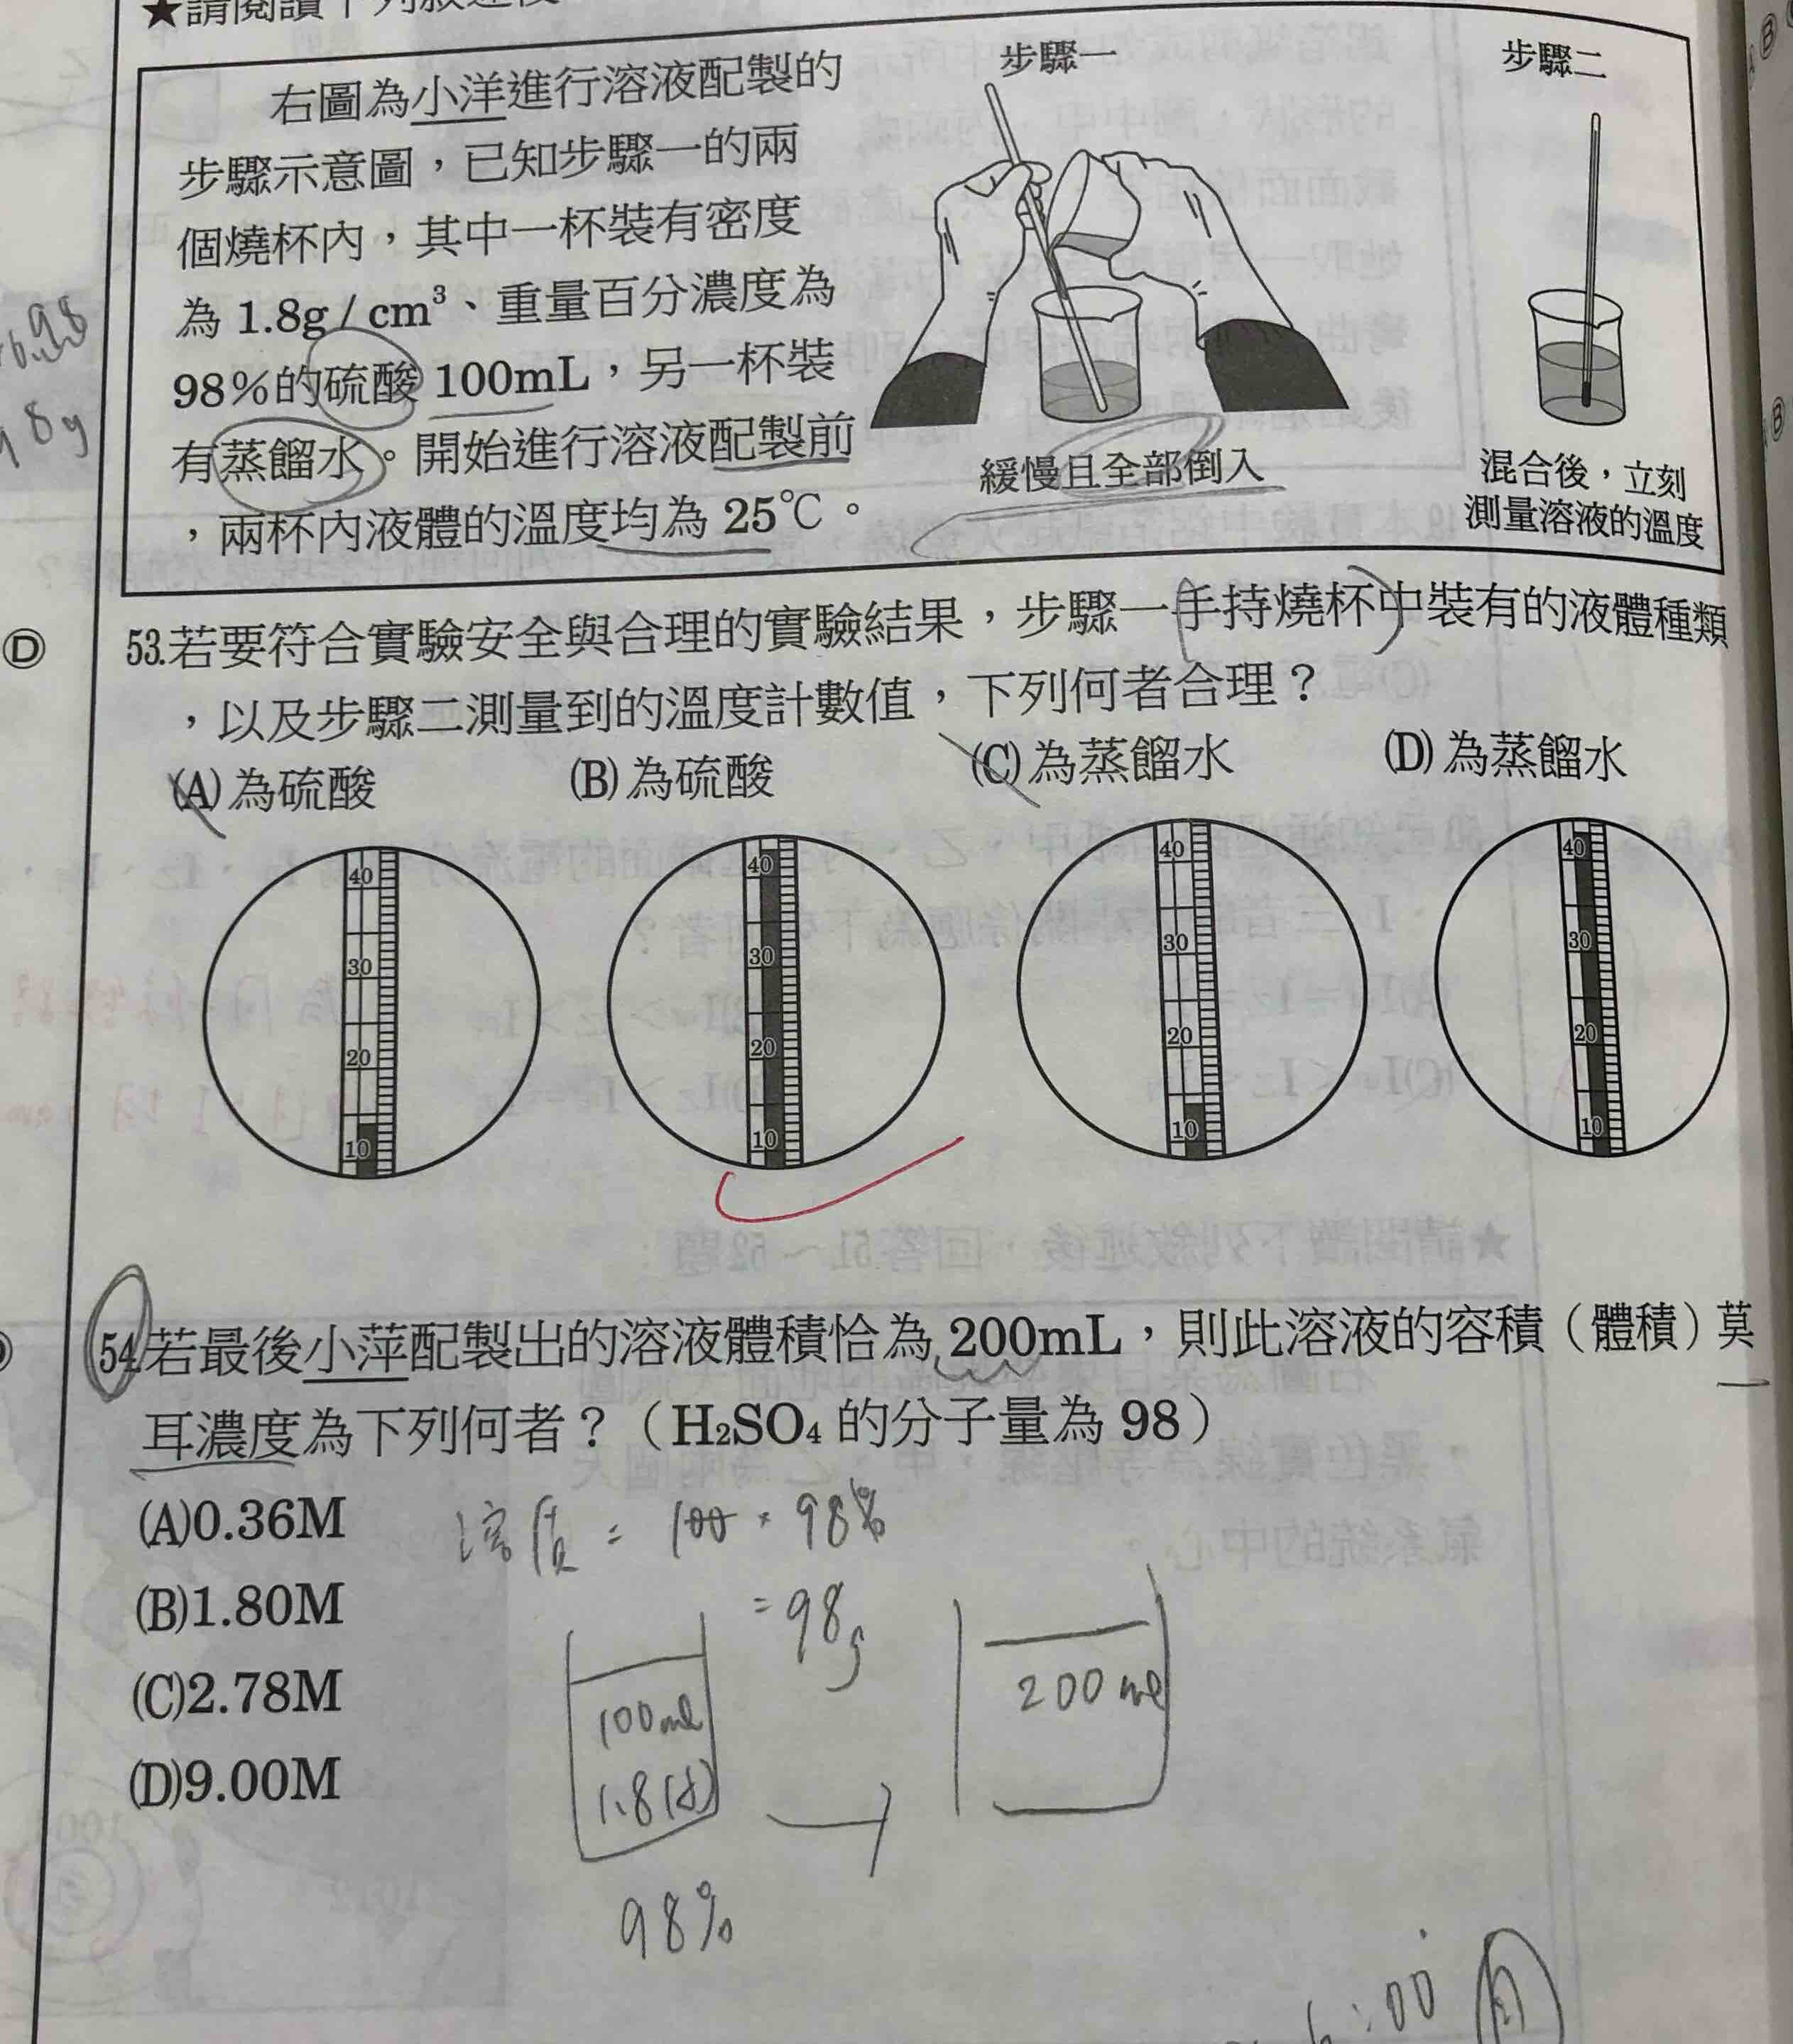 ★請閱讀下列敘述後
右圖為小洋進行溶液配製的
步驟示意圖，已知步驟一的兩
個燒杯內，其中一杯裝有密度
為 1.8g / cm³、重量百分濃度為
98％的硫酸 100mL，另一杯裝
有蒸餾水。開始進行溶液配製前
，兩杯內液體的溫度均為 25℃。
步驟一
緩慢且全部倒入
步驟二
混合後，立刻
測量溶液的溫度
Ⓓ
53.若要符合實驗安全與合理的實驗結果，步驟一手持燒杯中裝有的液體種類
，以及步驟二測量到的溫度計數值，下列何者合理？
(A)為硫酸 (B)為硫酸 (C)為蒸餾水 (D)為蒸餾水
40 40 40 40
30 30 30 30
20 20 20 20
10 10 10 10
54.若最後小萍配製出的溶液體積恰為 200mL，則此溶液的容積（體積）莫
耳濃度為下列何者？（H₂SO₄ 的分子量為 98）
(A)0.36M
(B)1.80M
(C)2.78M
(D)9.00M
溶質 = 100 × 98%
= 98g
100ml
1.8(d)
98%
200ml